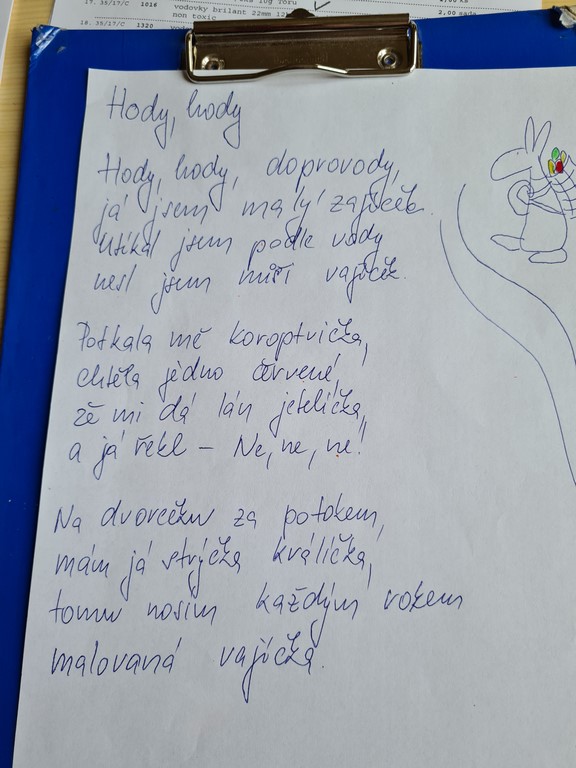 17. 35/17/C 1016
vodovky brilant 22mm 12
non toxic
2,00 sada
18. 35/17/C 1320
Hody, hody
Hody, hody, doprovody,
já jsem malý zajíček.
Utíkal jsem podle vody
nesl jsem nůší vajíček.
Potkala mě koroptvička,
chtěla jedno červené,
zě mi dá lán jetelíčka,
a já řekl – Ne, ne, ne!
Na dvorečku za potokem,
mám já strýčka králíčka,
tomu nosím každým rokem
malovaná vajíčka.